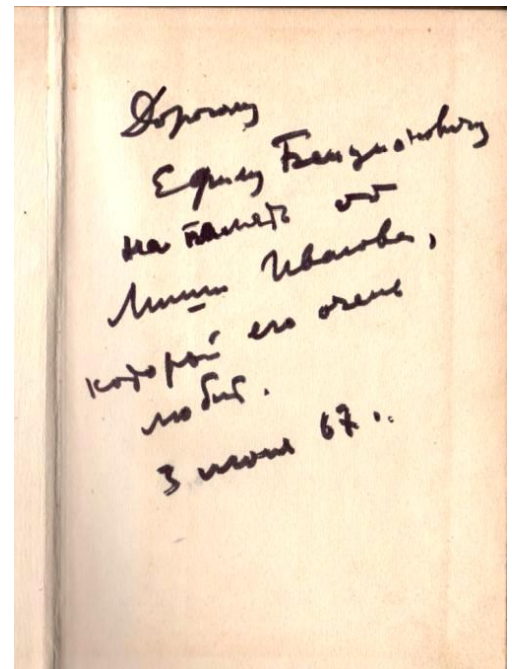 Дорогому
Ефиму Бенциановичу
на память от
Миши Иванова,
который его очень
любит.
3 июня 67 г.